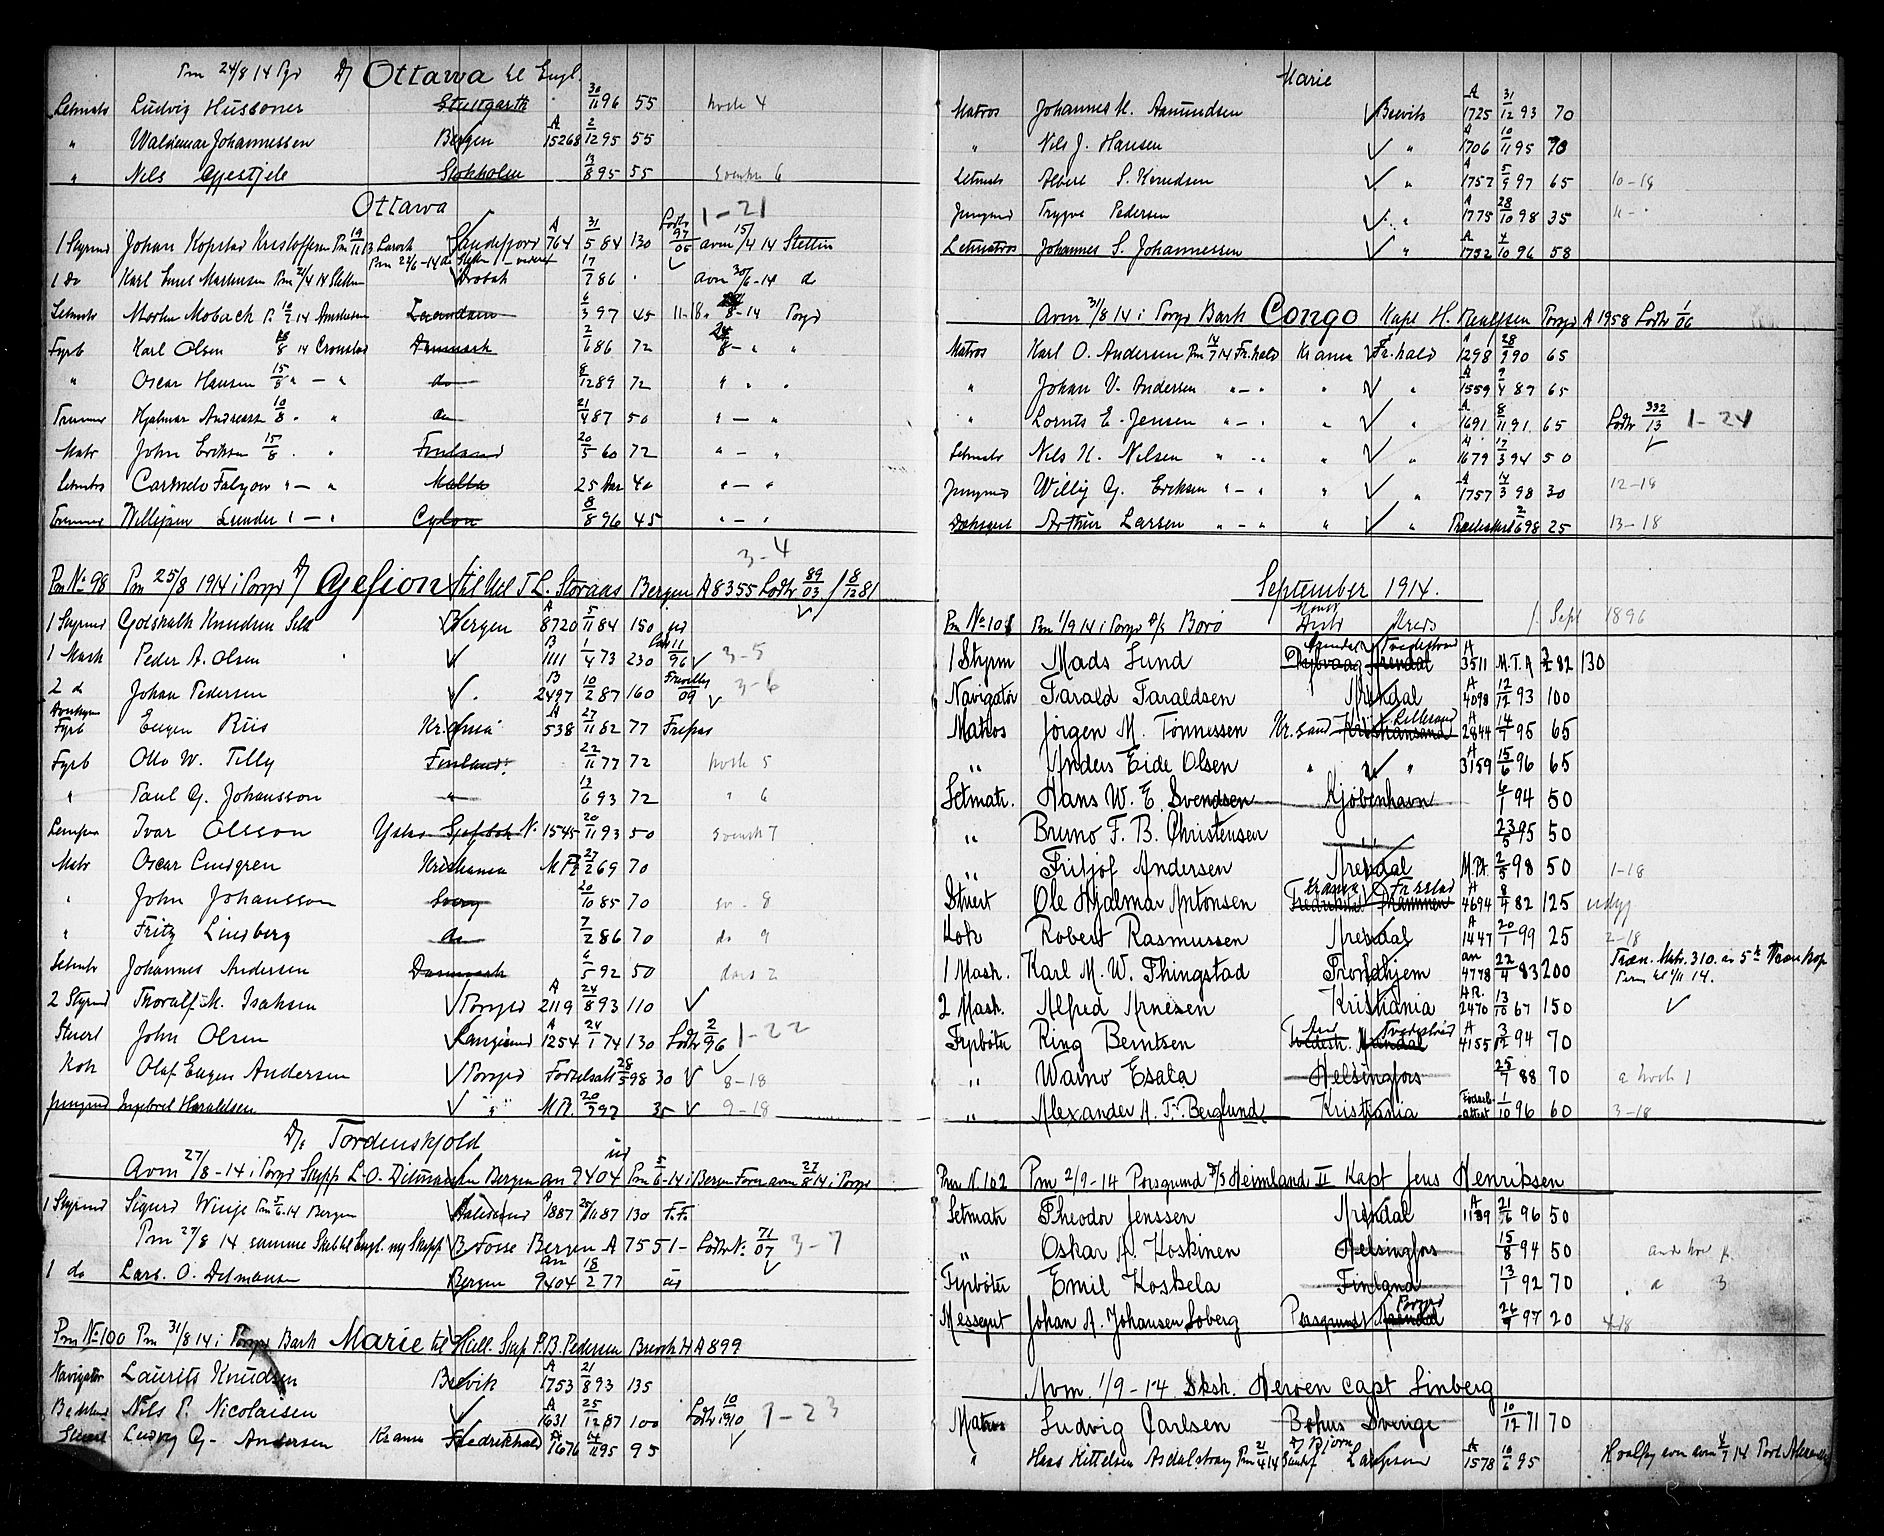 Pm 24/8 14 Pgr D/ Ottawa til Engl.
Letmatr Ludvig Hussoner Stuttgarth 30/11 96 55 4
" Waldemar Johannessen Bergen A 15268 2/12 95 55
" Nils Stokholm 13/8 95 55 svensk 6
Ottawa
1-21
1 Styrmd Johan Kopstad Kristoffersen Pm 19/11 13 Larvik Sandefjord A 764 31/5 84 130 Lodtr 97/05 avm 15/4 14 Stettin
1 do Karl Emil Martinsen Pm 21/4 14 Stettin Drobak 17/7 86 avm 30/6-14 do
Letmatr Morten P. 10/7 14 6/3 97 45 11-18 8-14 Porsgr
Fyrb Karl Olsen 8 14 Cronstad Danmark 2/6 86 72 8 - " "
" Oscar Hansen 15/8 " - " do 8/12 89 72 " " "
Trimmer Hjalmar Andreass 10/8 " " do 21/4 87 50 " - "
Matr John Eriksen 15/8 " Finland 20/5 60 72 " - "
Letmatr Carmelo Falzon " - " Malta 25 Aar 40 " - "
Trimmer Sunder " - " Cylon 8/8 96 45 " - "
3-4
Pm No 98 Pm 25/8 1914 i Porsgr D/ Gefion til Hul T L. Storaas Bergen A 8355 Lodtr 89/03 / 8/12 81
1 Styrmd Godskalk Knudsen Bergen A 8720 5/11 84 150 ud
1 Mask Peder A. Olsen B 1111 1/4 73 230 11/96 3-5
2 d Johan Pedersen B 2497 10/2 87 160 09 3-6
Fyrb Eugen Riis Kr.ania A 538 27/11 82 77 Fripas
Fyrb Otto W. Tilly Finland 22/11 77 72 5
" Paul G. Johansson " 13/6 93 72 " 6
Lemper Ivar Olsson N. 1545 20/11 93 50 svensk 7
Matr Oscar Lindgren Kristiania M.R. 27/2 69 70
" John Johansson Sverg 20/10 85 70 sv. 8
" Fritz Lindberg do 7/2 86 70 do 9
Letmatr Johannes Andersen Danmark 6/5 92 50 dansk 2
2 Styrmd Thoralf M. Isaksen Porsgrd A 2119 24/8 93 110
Stuert John Olsen Langesund A 1254 24/1 74 130 Lodtr 2/96 1-22
Kok Olaf Eugen Andersen Porsgrd Fodselsatt 28/5 98 30 8-18
Jungmd Ingebret Haraldsen " M.R. 20/7 97 35 9-18
D/s Tordenskjold
Avm 27/8-14 i Porsgr Skipp L.O. Ditmansen Bergen an 9404 Pm 5/6-14 i Bergen Forer avm 27/8 14 i Porsgr
1 Styrmd Sigurd Winje Pm 5/6-14 Bergen Aalesund A 1887 11 87 130 F.F.
Pm 27/8 14 samme Skib til Engl. ny Skipp B Fosse Bergen A 7551 - Lodtr N. 71/07 3-7
1 do Lars. O. Ditmansen Bergen an 9404 18/2 77
Pm No 100 Pm 31/8 14 i Porsgr Bark Marie til Hull. Skip P.B. Pedersen Brevik A 899
Navigator Laurits Knudsen Brevik A 1753 21/8 93 135
Bedstmd Nils P. Nicolaisen A 1631 25/12 87 100 Lodtr 10/1910 1-23
Stuert Ludvig G. Andersen Kranie Fredrikhald A 1676 14/11 95 95
Marie
Matros Johannes K. Aamundsen Brevik A 1725 31/12 93 70
" Nils J. Hansen " A 1706 10/11 95 70
Letmatr Albert S. Knudsen " A 1757 5/9 97 65 10-18
Jungmd Trygve Pedersen " A 1775 28/10 98 35 11-
Letmatros Johannes S. Johannessen " A 1752 4/10 96 58
Avm 31/8 14 i Porsgr Bark Congo Kapt H. Knudsen Porsgr A 1958 Lodtr 1/06
Matros Karl O. Andersen Pm 14/7 14 Fr.hald Krania Fr.hald A 1298 28/9 90 65
" Johan V. Andersen " - " " " A 1559 9/4 87 65
" Lornts E. Jensen " - " " " A 1691 8/11 91 65 Lodtr 332/13 1-24
Letmatr Nils K. Nilsen " " " " A 1679 17/3 94 50
Jungmd Willy G. Eriksen " - " " " A 1757 14/3 98 30 12-18
Dæksgut Arthur Larsen " - " " " 2/6 98 25 13-18
September 1914.
Pm No 101 Pm 1/9 14 i Porsgr D/s Borø Distr Kreds 1. Sept 1896
1 Styrm Mads Lund Arendal Tvedestrand Dybvaag Arendal A 3511 M.T.A 82 130
Navigatör Tarald Taraldsen Arendal A 4098 12/12 93 100
Matros Jörgen M. Tönnessen Kr.sand Lillesand Kristiansand A 2844 14/7 95 65
" Anders Eide Olsen " " A 3159 15/6 96 65
Letmatr. Hans W. E. Svendsen Kjöbenhavn 6/1 94 50
" Bruno F. B. Christensen " 23/5 95 50
" Fritjof Andersen Arendal M.Rt. 2/5 98 50 1-18
Stuert Ole Hjalmar Antonsen Krania Fr.stad Fredrikstad Drammen A 4694 8/4 82 125 udyg
Kok Robert Rasmussen Arendal A 1447 20/1 99 25 2-18
1 Mask. Karl M. W. Thingstad Trondhjem an 4778 22/4 83 200 Træn. Matr. 310. in 5te Trænkop Perm til 1/11 14.
2 Mask. Alfred Arnesen Kristiania H.R. 2470 13/10 67 150
Fyrböter Ring Berntsen Tvedestrand Tvedestr. Arendal A 4155 3/12 94 70
" Waino Esala Helsingfors 25/7 88 70 1
" Alexander A. Fr. Berglund Kristiania Fodsels attest 1/10 96 60 3-18
Pm N 102 Pm 2/9-14 Porsgrund D/S Heimland II Kapt Jens Henriksen
Letmatr Theodor Jenssen Arendal A 1189 21/6 96 50
" Oskar A. Koskinen Helsingfors 15/8 94 50
Fyrböter Emil Koskela Finland 13/1 92 70 3
Messegut Johan A. Johansen Loberg Porsgrund Porsgrd Arendal 26/9 97 20 4-18
Avm. 1/9-14 Sksk. Herven capt Linberg
Matros Ludvig Carlsen Bohus Sverige 10/12 71 70
" Hans Kittelsen Asdalstrang Pm 21/4 14 Larssen A 1578 10/6 95